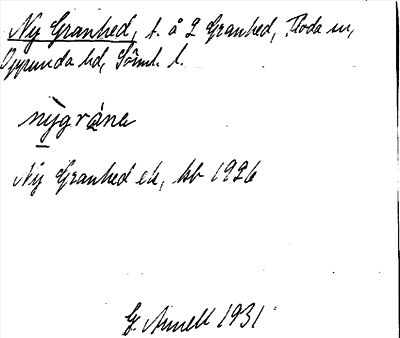 Ny Granhed, t. å 2 Granhed, Floda sn,
Oppunda hd, Sörml. l.
nỳgrána
Ny Granhed ek, kb 1926
G. Arnell 1931